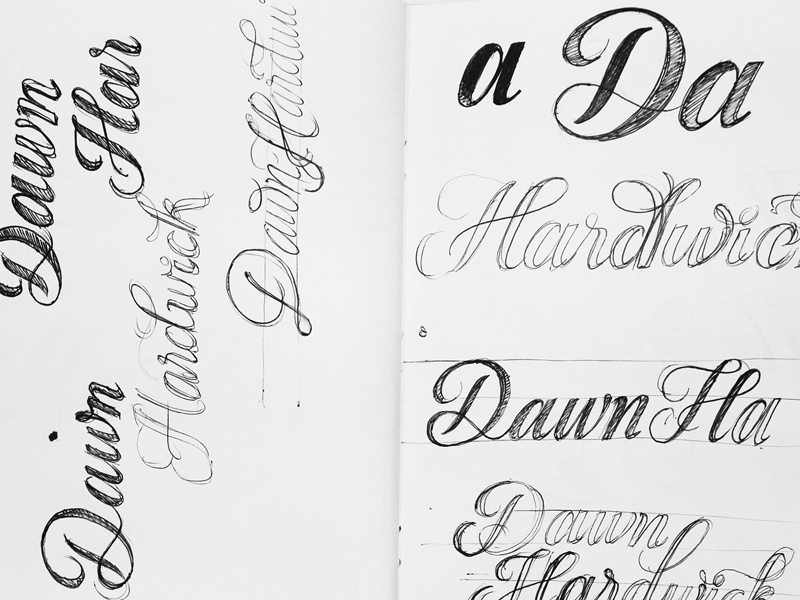 Dawn
Har
Dawn
Hardwick
Dawn Hardwi
a Da
Hardwick
8
Dawn Ha
Dawn
Hardwick